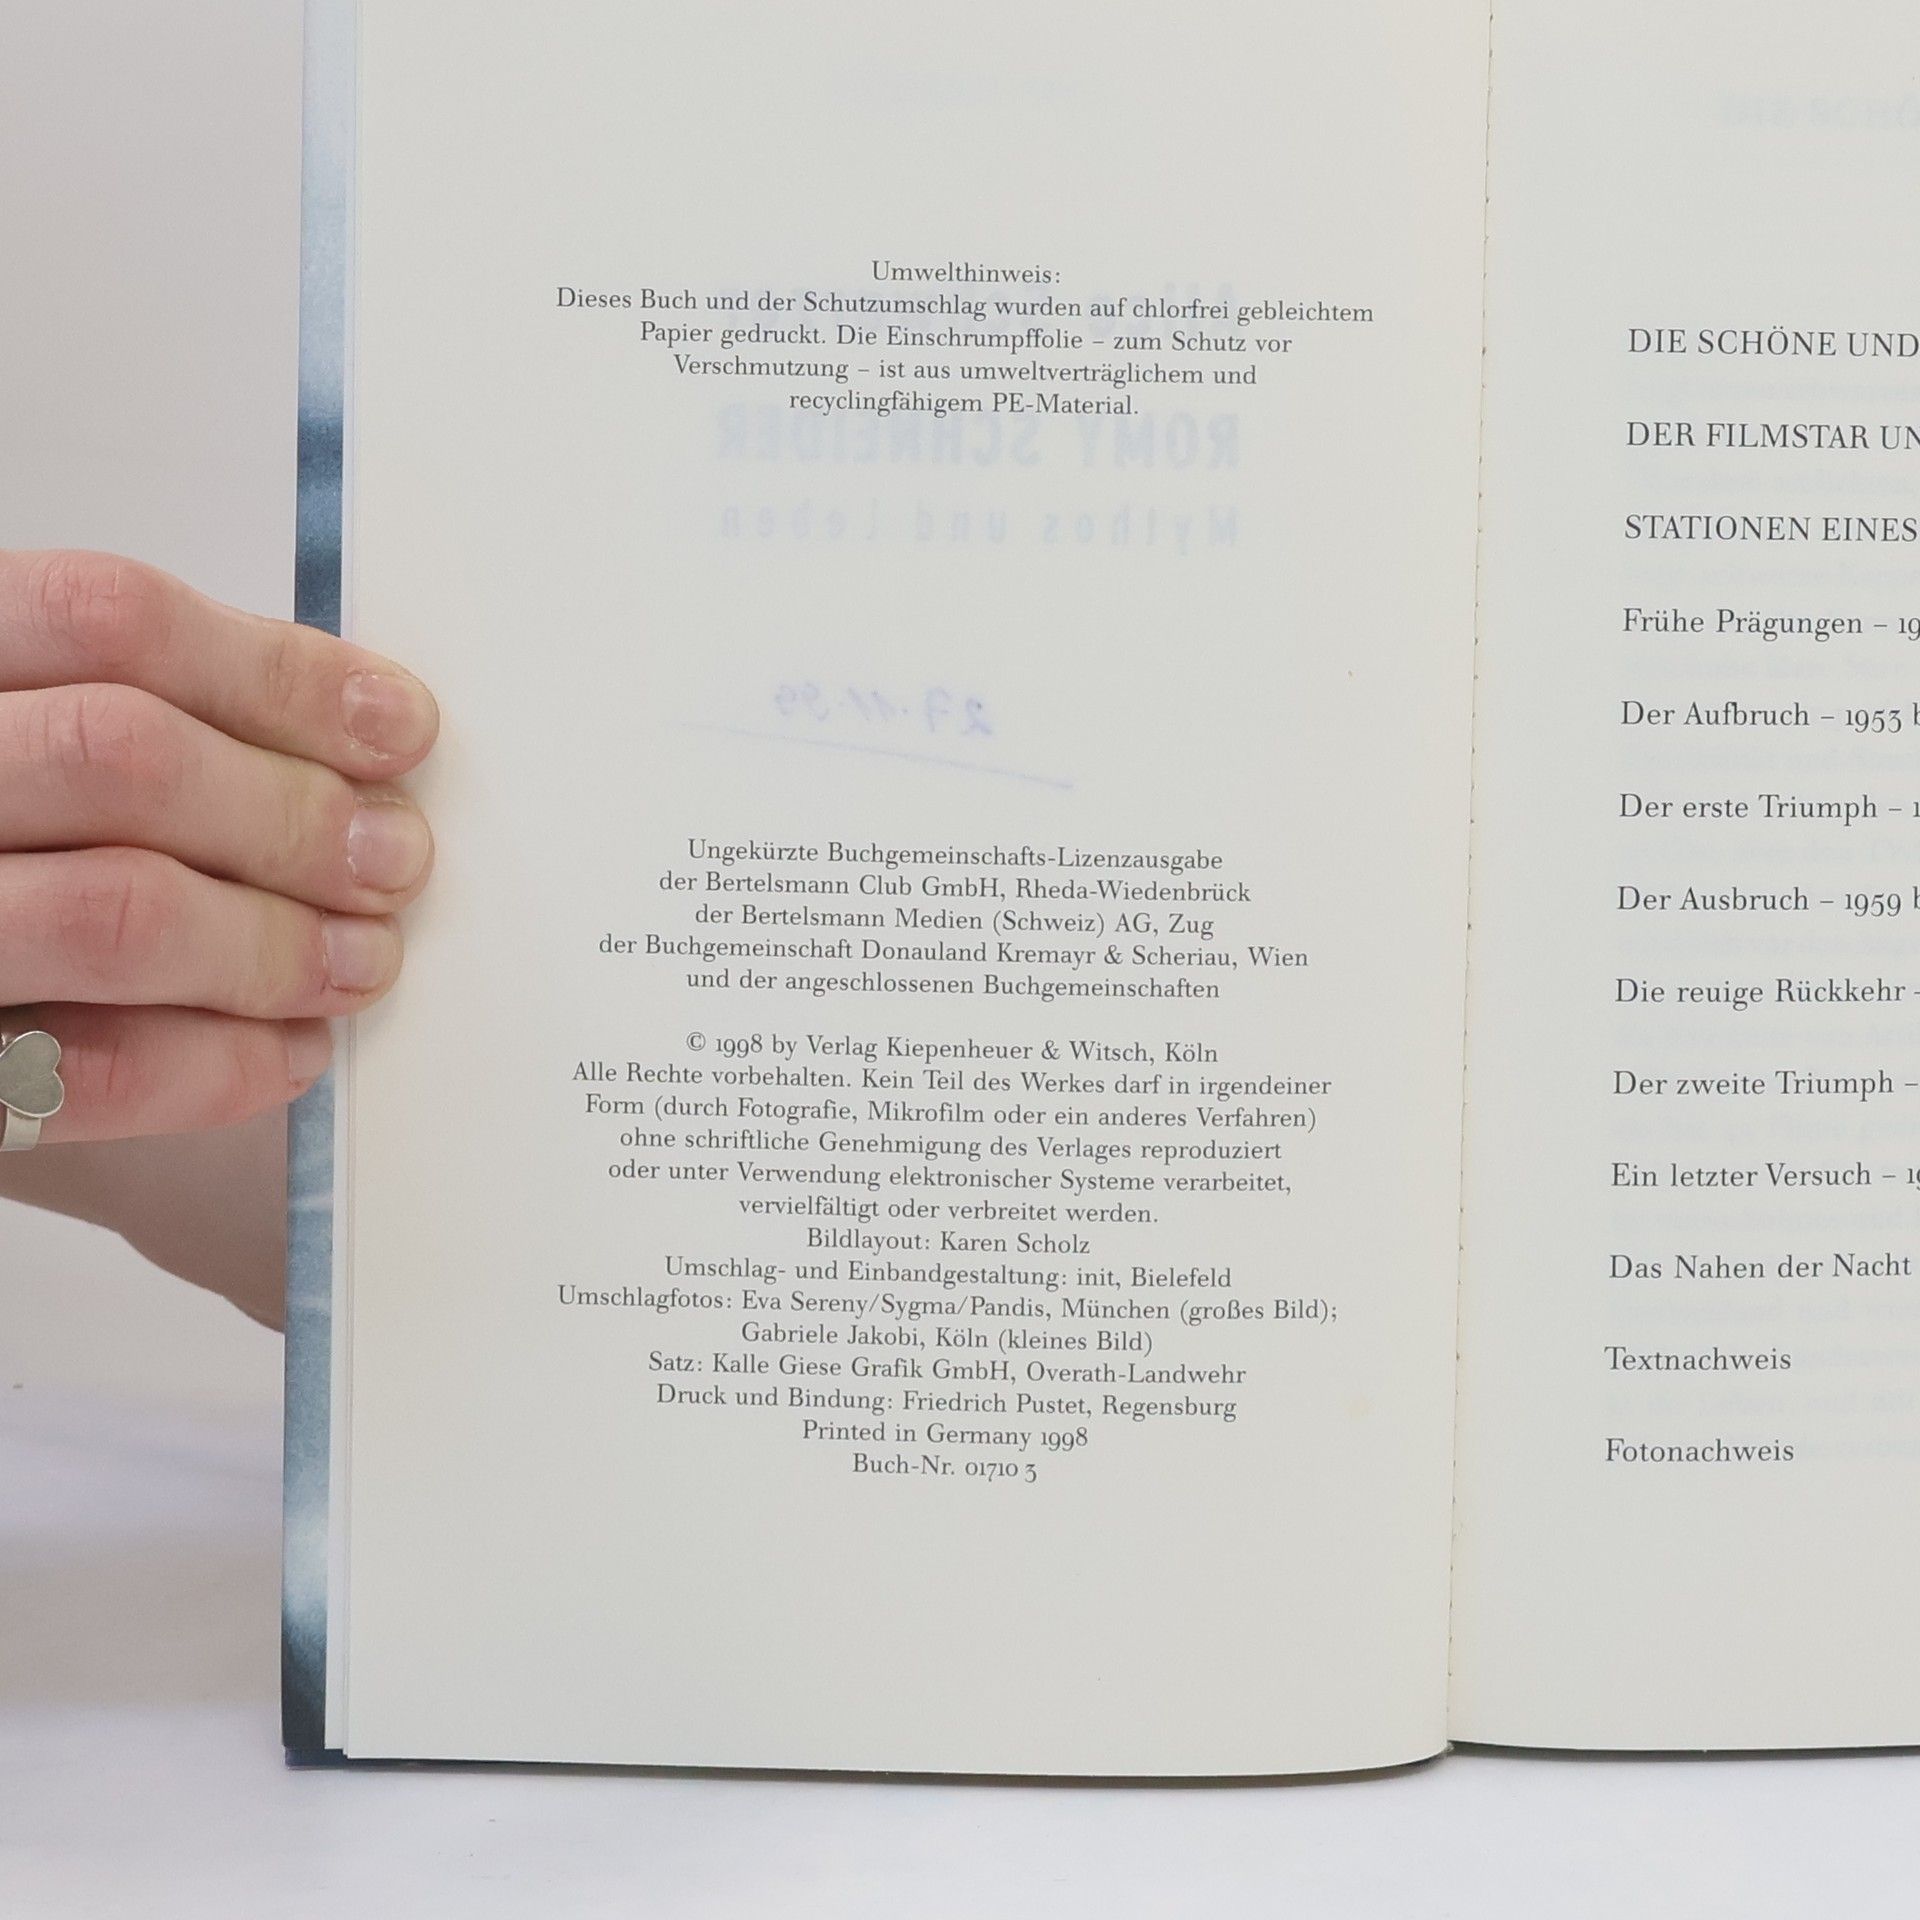 Umwelthinweis:
Dieses Buch und der Schutzumschlag wurden auf chlorfrei gebleichtem
Papier gedruckt. Die Einschrumpffolie – zum Schutz vor
Verschmutzung – ist aus umweltverträglichem und
recyclingfähigem PE-Material.
ROMY SCHNEIDER
Mythos und Leben
27.11.99
Ungekürzte Buchgemeinschafts-Lizenzausgabe
der Bertelsmann Club GmbH, Rheda-Wiedenbrück
der Bertelsmann Medien (Schweiz) AG, Zug
der Buchgemeinschaft Donauland Kremayr & Scheriau, Wien
und der angeschlossenen Buchgemeinschaften
© 1998 by Verlag Kiepenheuer & Witsch, Köln
Alle Rechte vorbehalten. Kein Teil des Werkes darf in irgendeiner
Form (durch Fotografie, Mikrofilm oder ein anderes Verfahren)
ohne schriftliche Genehmigung des Verlages reproduziert
oder unter Verwendung elektronischer Systeme verarbeitet,
vervielfältigt oder verbreitet werden.
Bildlayout: Karen Scholz
Umschlag- und Einbandgestaltung: init, Bielefeld
Umschlagfotos: Eva Sereny/Sygma/Pandis, München (großes Bild);
Gabriele Jakobi, Köln (kleines Bild)
Satz: Kalle Giese Grafik GmbH, Overath-Landwehr
Druck und Bindung: Friedrich Pustet, Regensburg
Printed in Germany 1998
Buch-Nr. 01710 3
DIE SCHÖNE UND
DER FILMSTAR UN
STATIONEN EINES
Frühe Prägungen – 19
Der Aufbruch – 1953 b
Der erste Triumph – 1
Der Ausbruch – 1959 b
Die reuige Rückkehr –
Der zweite Triumph –
Ein letzter Versuch – 19
Das Nahen der Nacht
Textnachweis
Fotonachweis